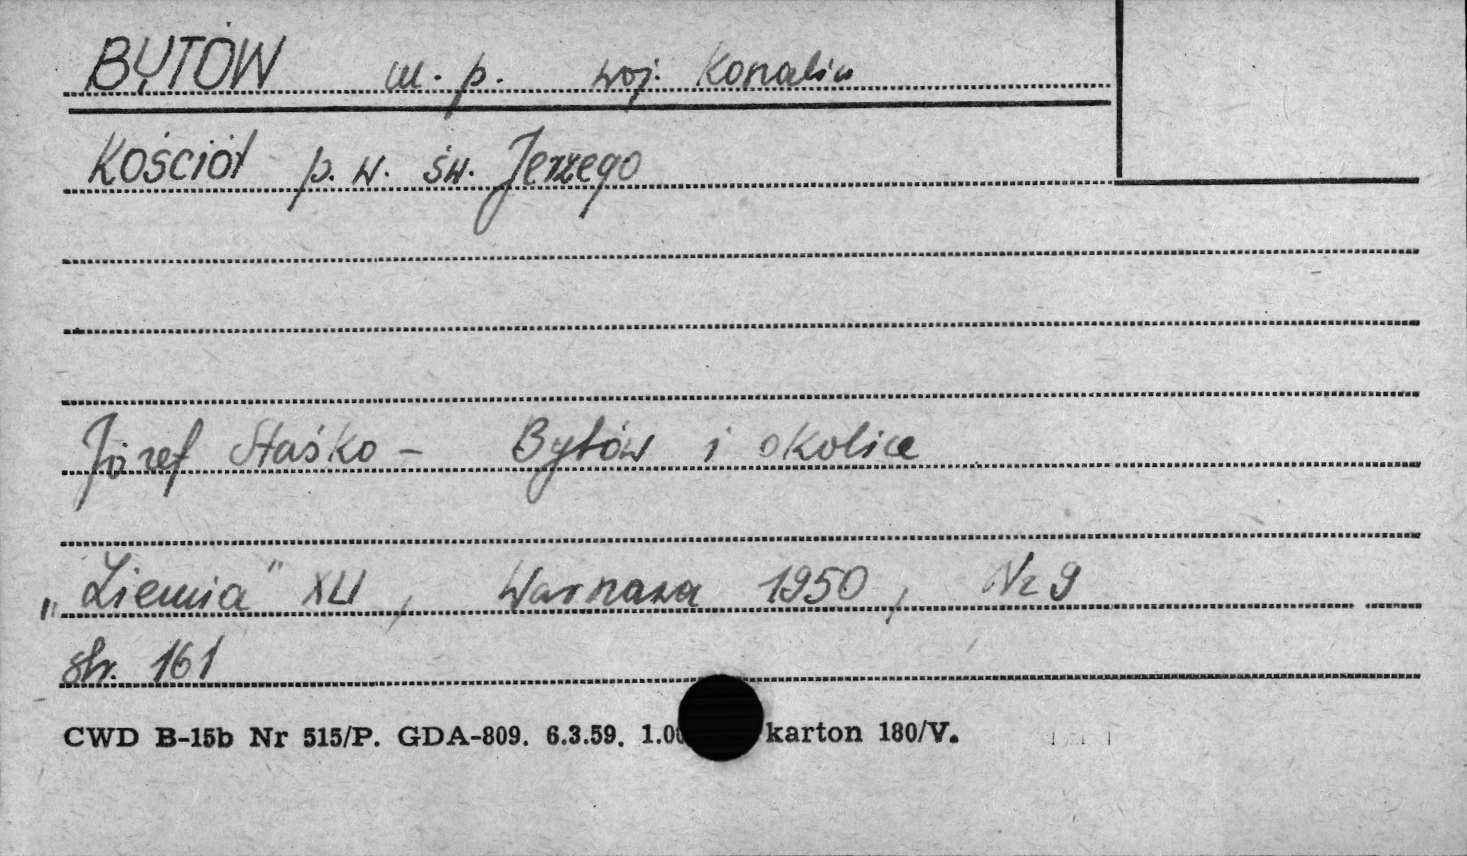 BYTÓW m. p. woj. Koszalin
Kościół p. w. św. Jerzego
Józef Staśko - Bytów i okolice
„Ziemia" XLI, Warszawa 1950, Nr 9
str. 161
CWD B-15b Nr 515/P. GDA-809. 6.3.59. karton 180/V.